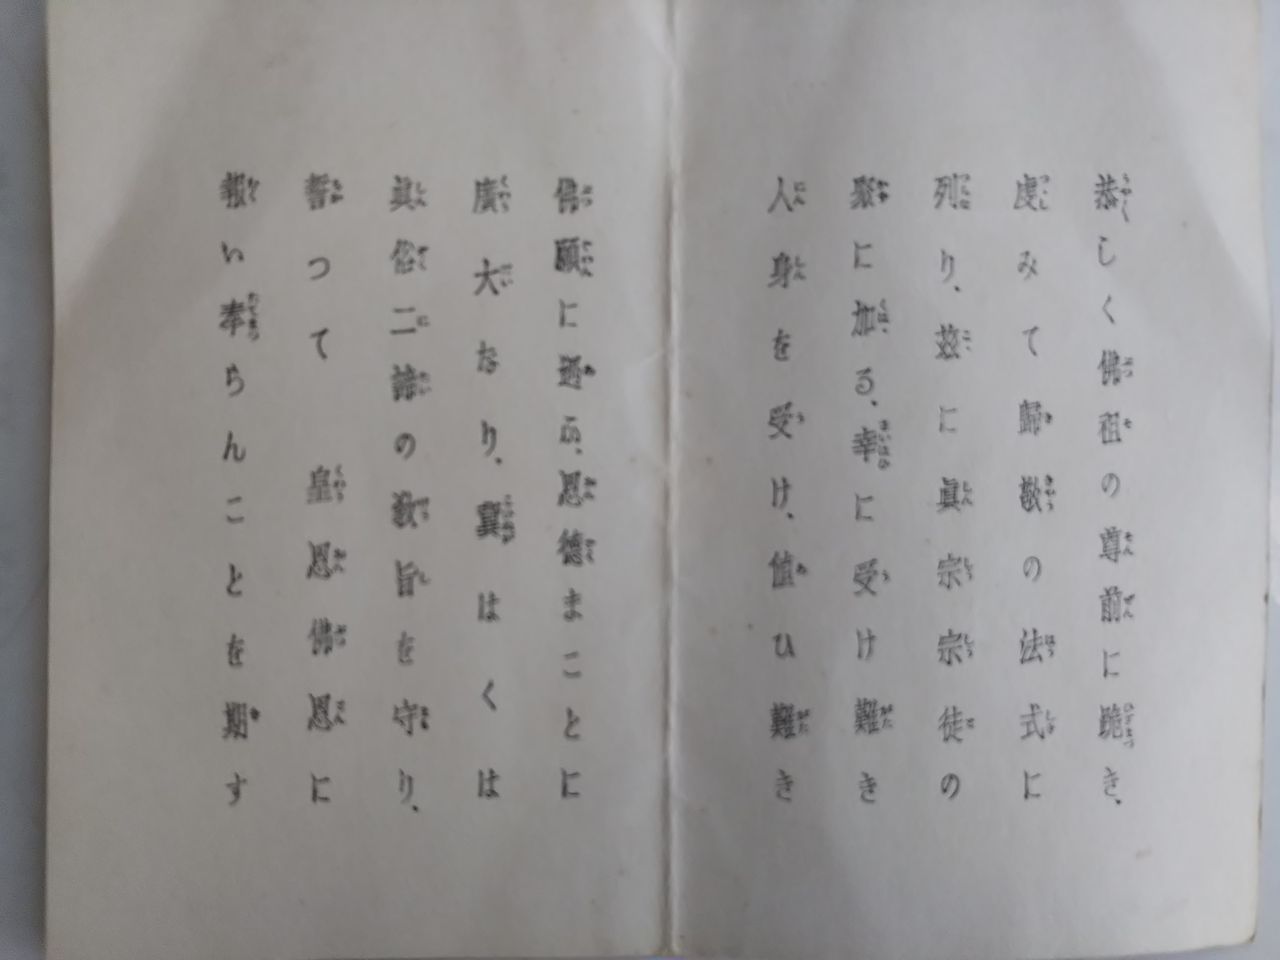 恭しく佛祖の尊前に跪き、
虔みて歸敬の法式に
列り、玆に眞宗宗徒の
聚に加る、幸に受け難き
人身を受け、値ひ難き
佛願に遇ふ、恩德まことに
廣大なり、冀はくは
眞俗二諦の敎旨を守り、
誓つて 皇恩佛恩に
報い奉らんことを期す